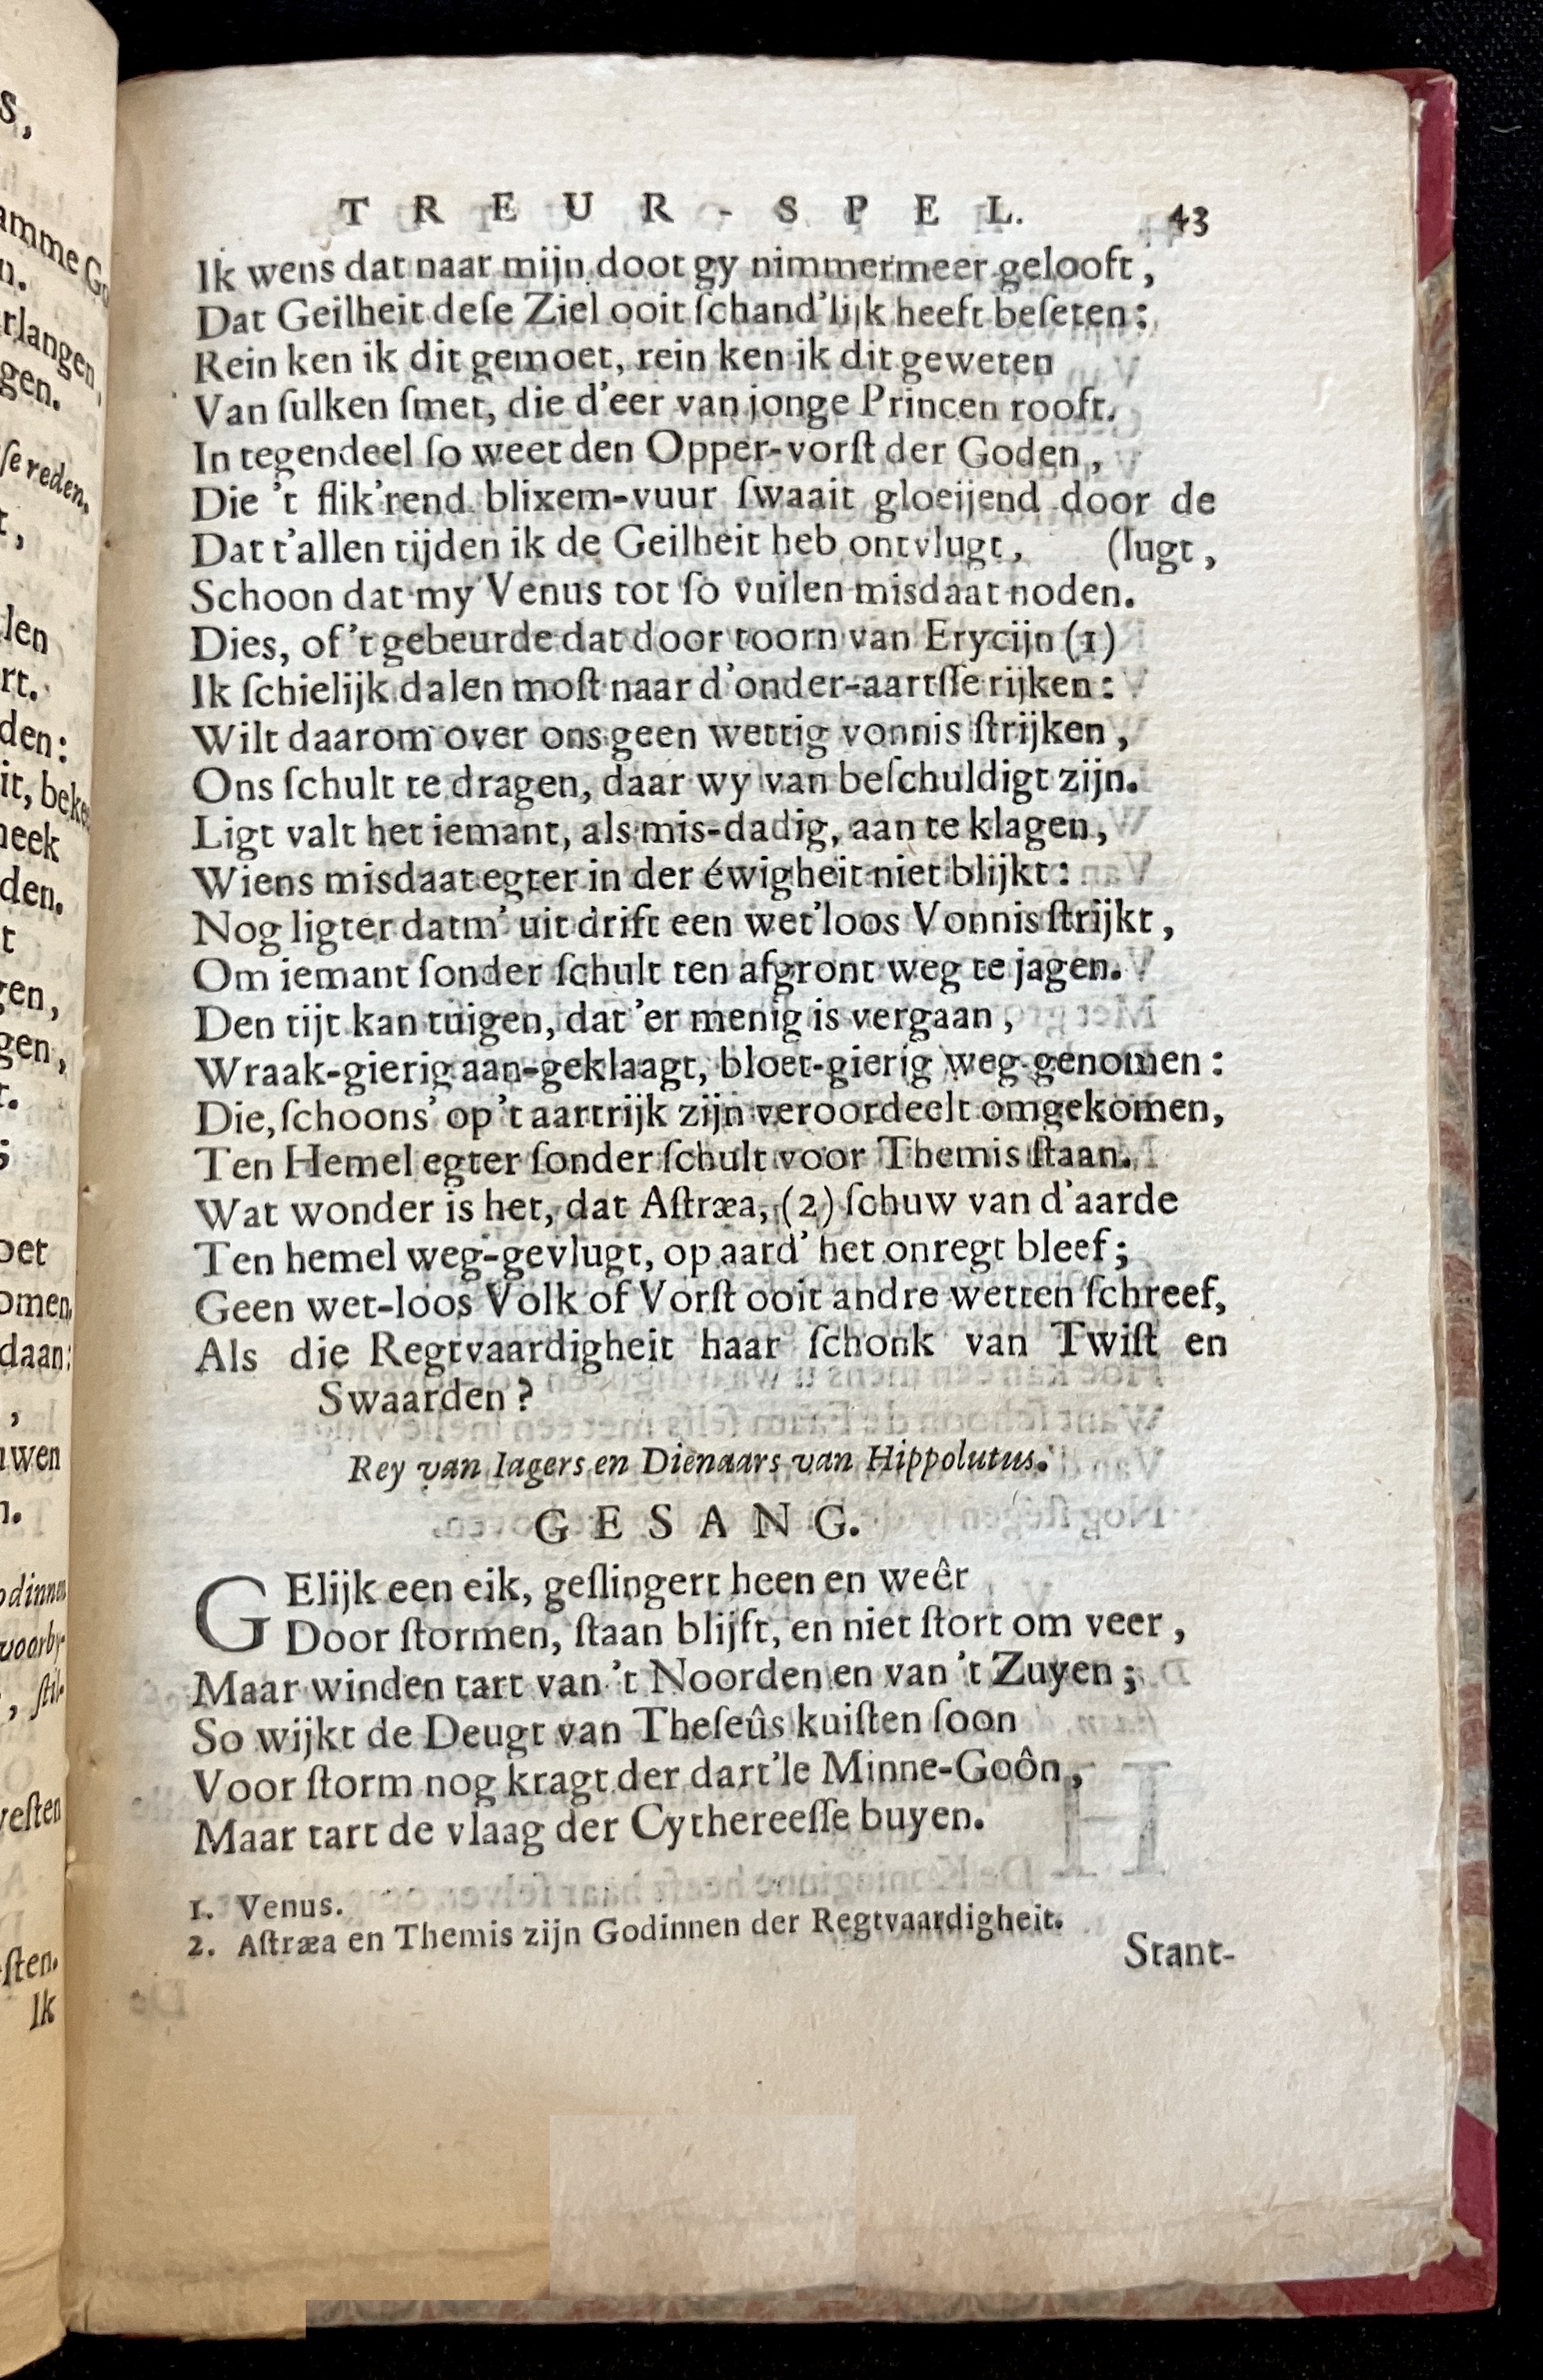 TREUR-SPEL. 43
Ik wens dat naar mijn doot gy nimmermeer gelooft,
Dat Geilheit deſe Ziel ooit ſchand'lijk heeft beſeten:
Rein ken ik dit gemoet, rein ken ik dit geweten
Van ſulken ſmet, die d'eer van jonge Princen rooft.
In tegendeel ſo weet den Opper-vorſt der Goden,
Die 't flik'rend blixem-vuur ſwaait gloeijend door de
Dat t'allen tijden ik de Geilheit heb ontvlugt, (lugt,
Schoon dat my Venus tot ſo vuilen misdaat noden.
Dies, of 't gebeurde dat door toorn van Erycijn (1)
Ik ſchielijk dalen moſt naar d'onder-aartſſe rijken:
Wilt daarom over ons geen wettig vonnis ſtrijken,
Ons ſchult te dragen, daar wy van beſchuldigt zijn.
Ligt valt het iemant, als mis-dadig, aan te klagen,
Wiens misdaat egter in der éwigheit niet blijkt:
Nog ligter datm' uit drift een wet'loos Vonnis ſtrijkt,
Om iemant ſonder ſchult ten afgront weg te jagen.
Den tijt kan tuigen, dat 'er menig is vergaan,
Wraak-gierig aan-geklaagt, bloet-gierig weg-genomen:
Die, ſchoons' op 't aartrijk zijn veroordeelt omgekomen,
Ten Hemel egter ſonder ſchult voor Themis ſtaan.
Wat wonder is het, dat Aſtræa, (2) ſchuw van d'aarde
Ten hemel weg-gevlugt, op aard' het onregt bleef;
Geen wet-loos Volk of Vorſt ooit andre wetten ſchreef,
Als die Regtvaardigheit haar ſchonk van Twiſt en
Swaarden?
Rey van Iagers en Dienaars van Hippolutus.
GESANG.
GElijk een eik, geſlingert heen en weêr
Door ſtormen, ſtaan blijft, en niet ſtort om veer,
Maar winden tart van 't Noorden en van 't Zuyen;
So wijkt de Deugt van Theſeûs kuiſten ſoon
Voor ſtorm nog kragt der dart'le Minne-Goôn,
Maar tart de vlaag der Cythereeſſe buyen.
1. Venus.
2. Aſtræa en Themis zijn Godinnen der Regtvaardigheit.
Stant-